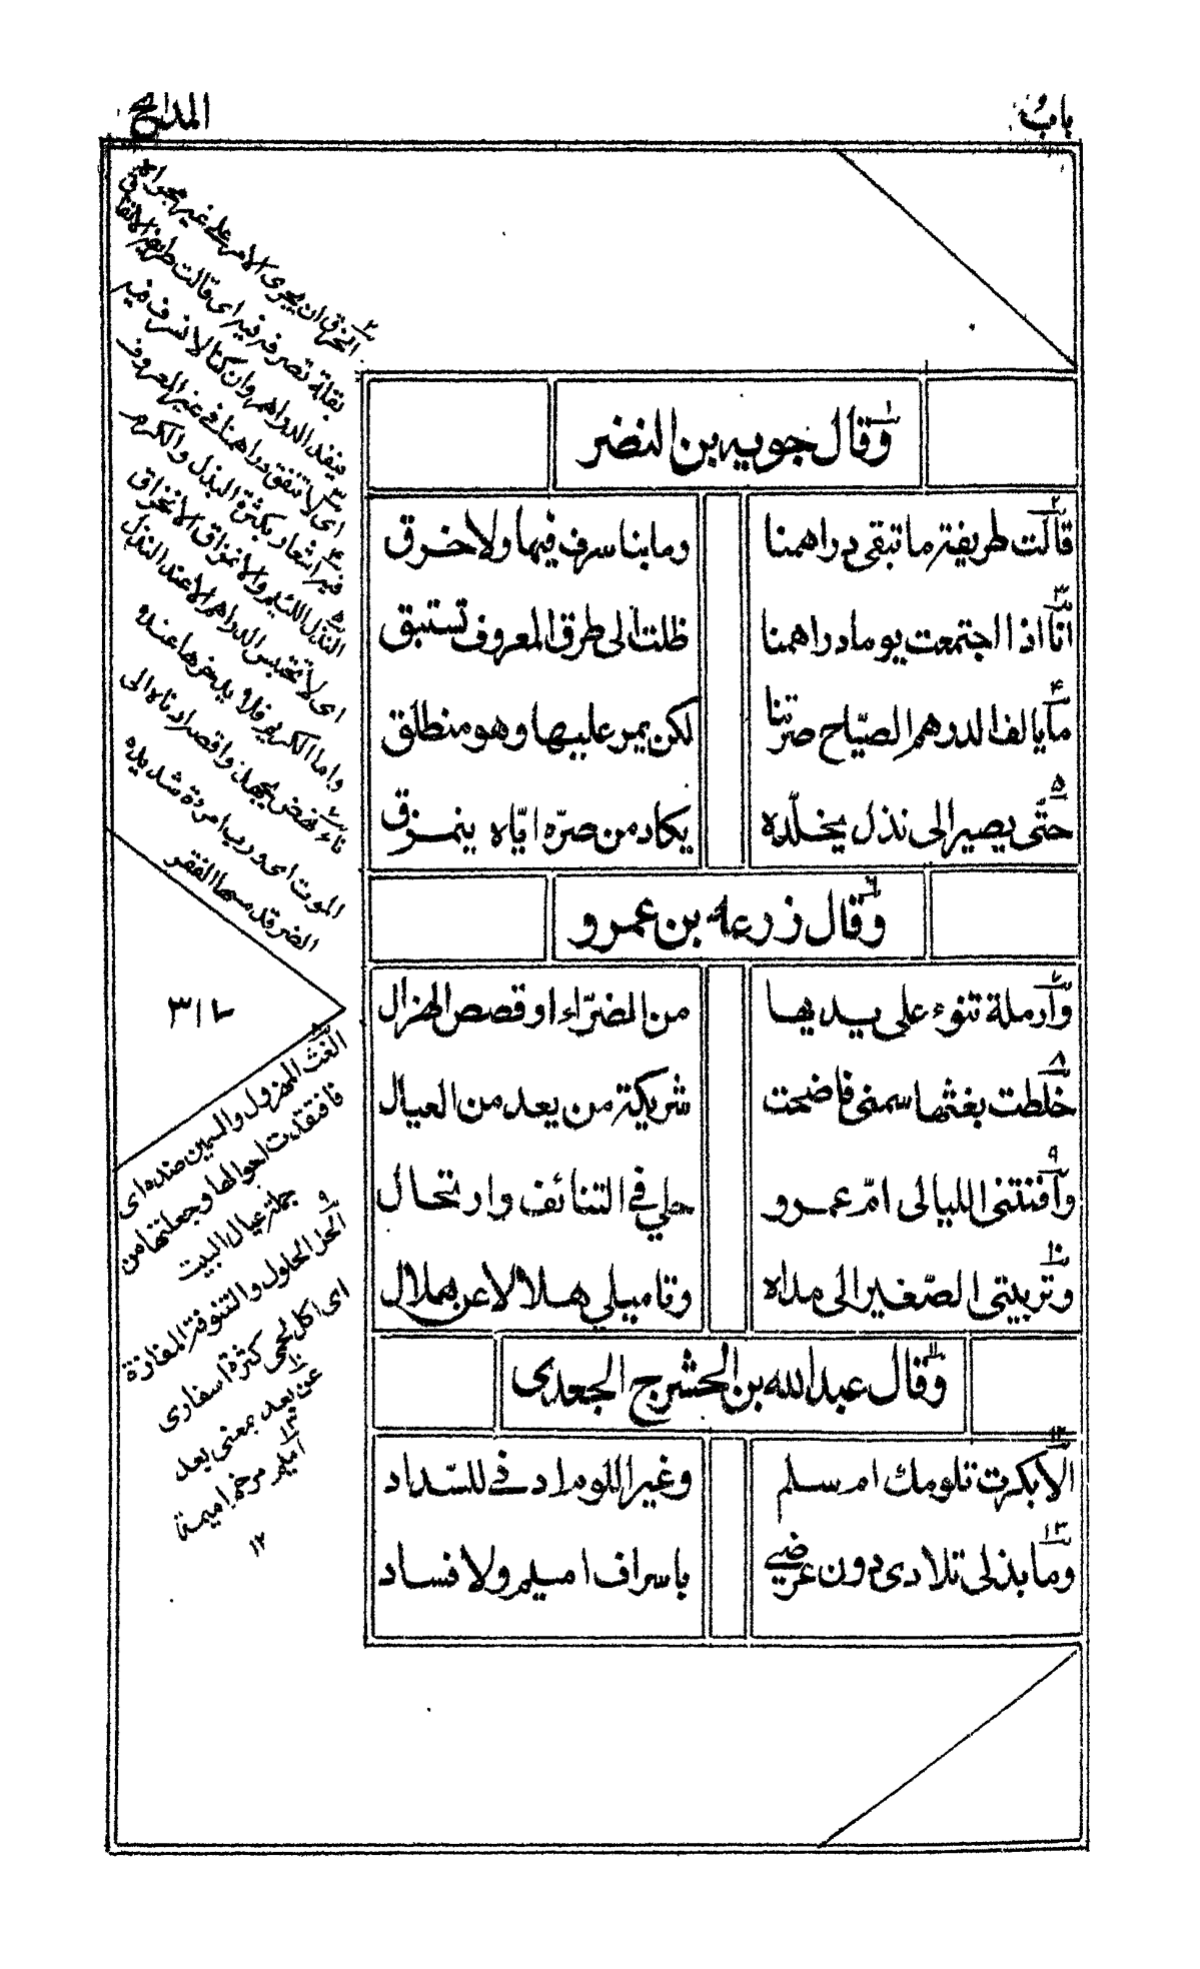 باب المدائح
١ وقال جويه بن النضر
٢ قالت طريفة ما تبقى دراهمنا وما بنا سرف فيها ولا خرق
٣ انا اذا اجتمعت يوما دراهمنا ظلت الى طرق المعروف تستبق
۴ ما يالف الدرهم الصيّاح صرتنا لكن يمر عليها وهو منطلق
۵ حتّى يصير الى نذل يخلّده يكاد من صرّه ايّاه ينمزق
۶ وقال زرعه بن عمرو
٧ وأرملة تنوء على يديها من الضرّاء او قصص الهزال
٨ خلطت بغثها سمنى فاضحت شريكة من يعد من العيال
٩ وأفنتنى الليالى امّ عمرو حلي في التنائف وارتحال
١٠ وتربيتى الصّغير الى مداه وتاميلي هلالا عن هلال
١١ وقال عبد الله بن الحشرج الجعدى
١٢ الا بكرت تلومك ام سلم وغير اللوم ادنے للسّداد
١٣ وما بذلى تلادى دون عرضي باسراف اميم ولا فساد
٢ الخرق ان يجرى الامر على غير مجراه
بقلة تصرفه فيه اى قالت طريفة
ينفد الدراهم وان كنا لا نسرف فيه
٣ اى لا تنفق دراهمنا فى غير المعروف
فيه اشعار بكثرة البذل والكرم
۵ النذل اللئيم والانمزاق الانخراق
اى لا تحتبس الدراهم الا عند النذل
واما الكريم فلا يدخرها عنده
٧ ناء نهض بجهد واقصاد ناه الى
الموت اى ورب امراة شديدة
الضر قد مسها الفقر
٣١٧
٨ الغث المهزول والسمين ضده اى
فافتقدت احوالها وجعلتها من
جملة عيال البيت
٩ الحل الحلول والتنوفة المفازة
اى اكل لحمى كثرة اسفارى
١٠ عن بعد بمعنى بعد
١٣ اميم مرخم اميمة
١٢